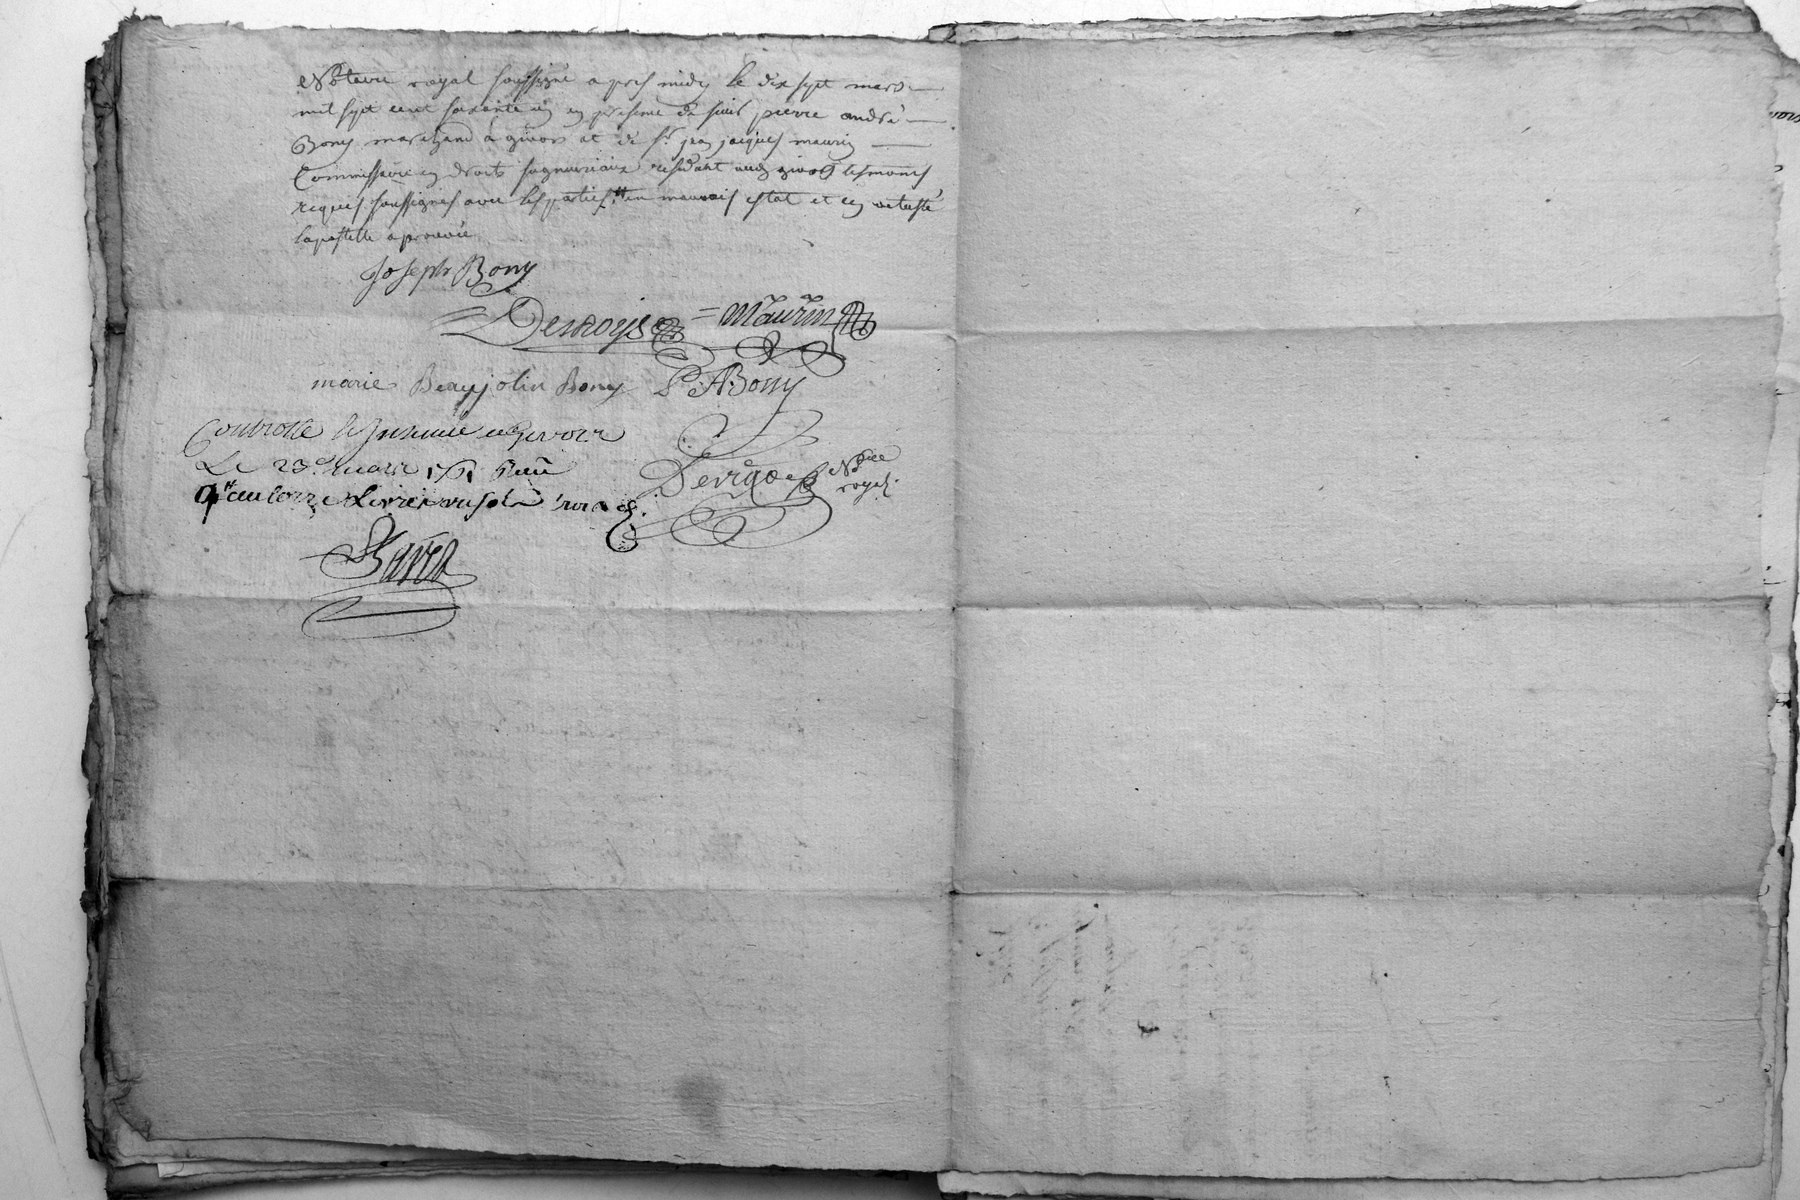 Notaire royal soussigné apres midy le dix sept mars
mil sept cent soixante un en presence de sieur pierre andré
Bony marchand à givors et de sr. jean jacques maurin
Commissaire en droits seigneuriaux residant aud. givors temoins
requis soussignés avec les parties. en mauvais estat et en vetusté
lapostille aprouvée
Joseph Bony
Desroys = maurin
marie Beaujolin Bony P. A Bony
Controllé & Insinué a Givors
Le 23e. mars 1761 Reçu
Devigne Nore royal